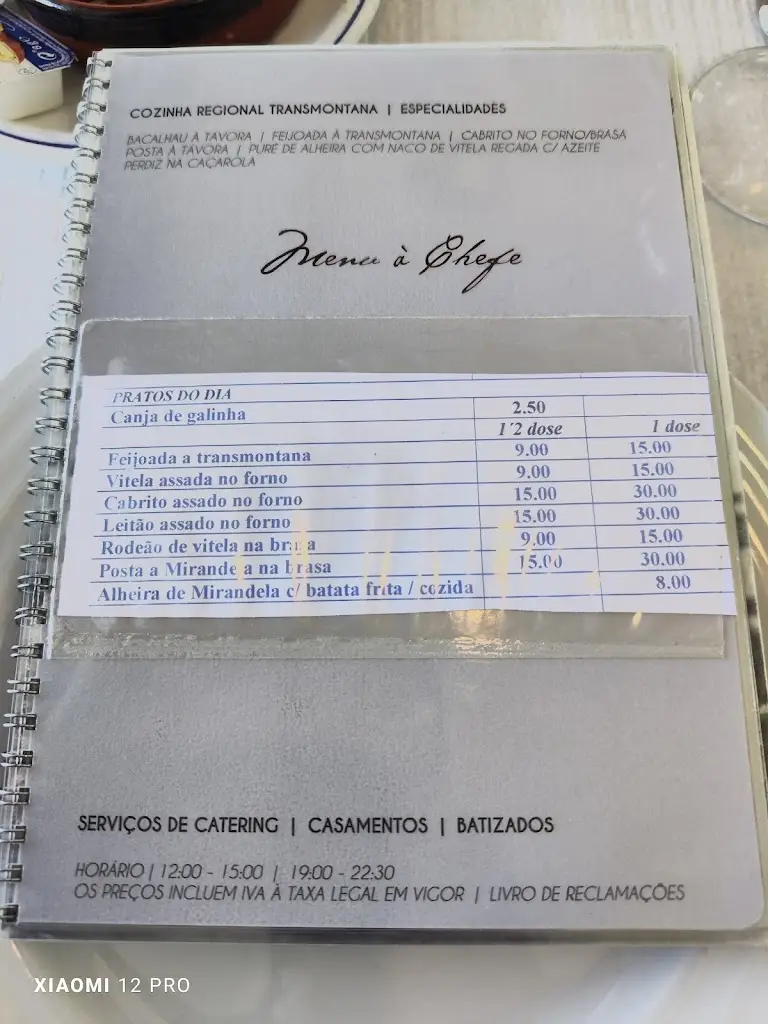 COZINHA REGIONAL TRANSMONTANA | ESPECIALIDADES
BACALHAU À TÁVORA | FEIJOADA À TRANSMONTANA | CABRITO NO FORNO/BRASA
POSTA À TÁVORA | PURÉ DE ALHEIRA COM NACO DE VITELA REGADA C/ AZEITE
PERDIZ NA CAÇAROLA
Menu à Chefe
PRATOS DO DIA
Canja de galinha 2.50
1´2 dose 1 dose
Feijoada a transmontana 9.00 15.00
Vitela assada no forno 9.00 15.00
Cabrito assado no forno 15.00 30.00
Leitão assado no forno 15.00 30.00
Rodeão de vitela na brasa 9.00 15.00
Posta a Mirandela na brasa 15.00 30.00
Alheira de Mirandela c/ batata frita / cozida 8.00
SERVIÇOS DE CATERING | CASAMENTOS | BATIZADOS
HORÁRIO | 12:00 - 15:00 | 19:00 - 22:30
OS PREÇOS INCLUEM IVA À TAXA LEGAL EM VIGOR | LIVRO DE RECLAMAÇÕES
XIAOMI 12 PRO